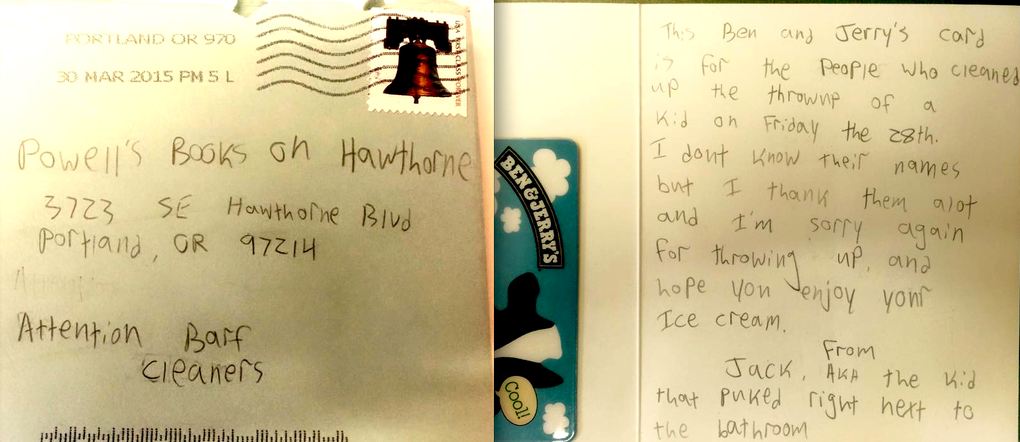 PORTLAND OR 970
30 MAR 2015 PM 5 L
USA FIRST-CLASS FOREVER
Powell's Books on Hawthorne
3723 SE Hawthorne Blvd
Portland, OR 97214
Attention Barf
cleaners
BEN & JERRY'S
Cool!
This Ben and Jerry's card
is for the people who cleaned
up the thrownp of a
kid on Friday the 28th.
I dont know their names
but I thank them alot
and I'm sorry again
for throwing up, and
hope you enjoy your
Ice cream.
From
Jack, AKA the kid
that puked right next to
the bathroom